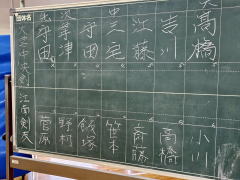 団体名
大 高橋
吉川
江藤
中 三宅
守田
次 草津
先 守田
江南剣友
小川
高橋
斉藤
笹本
飯塚
野村
菅原